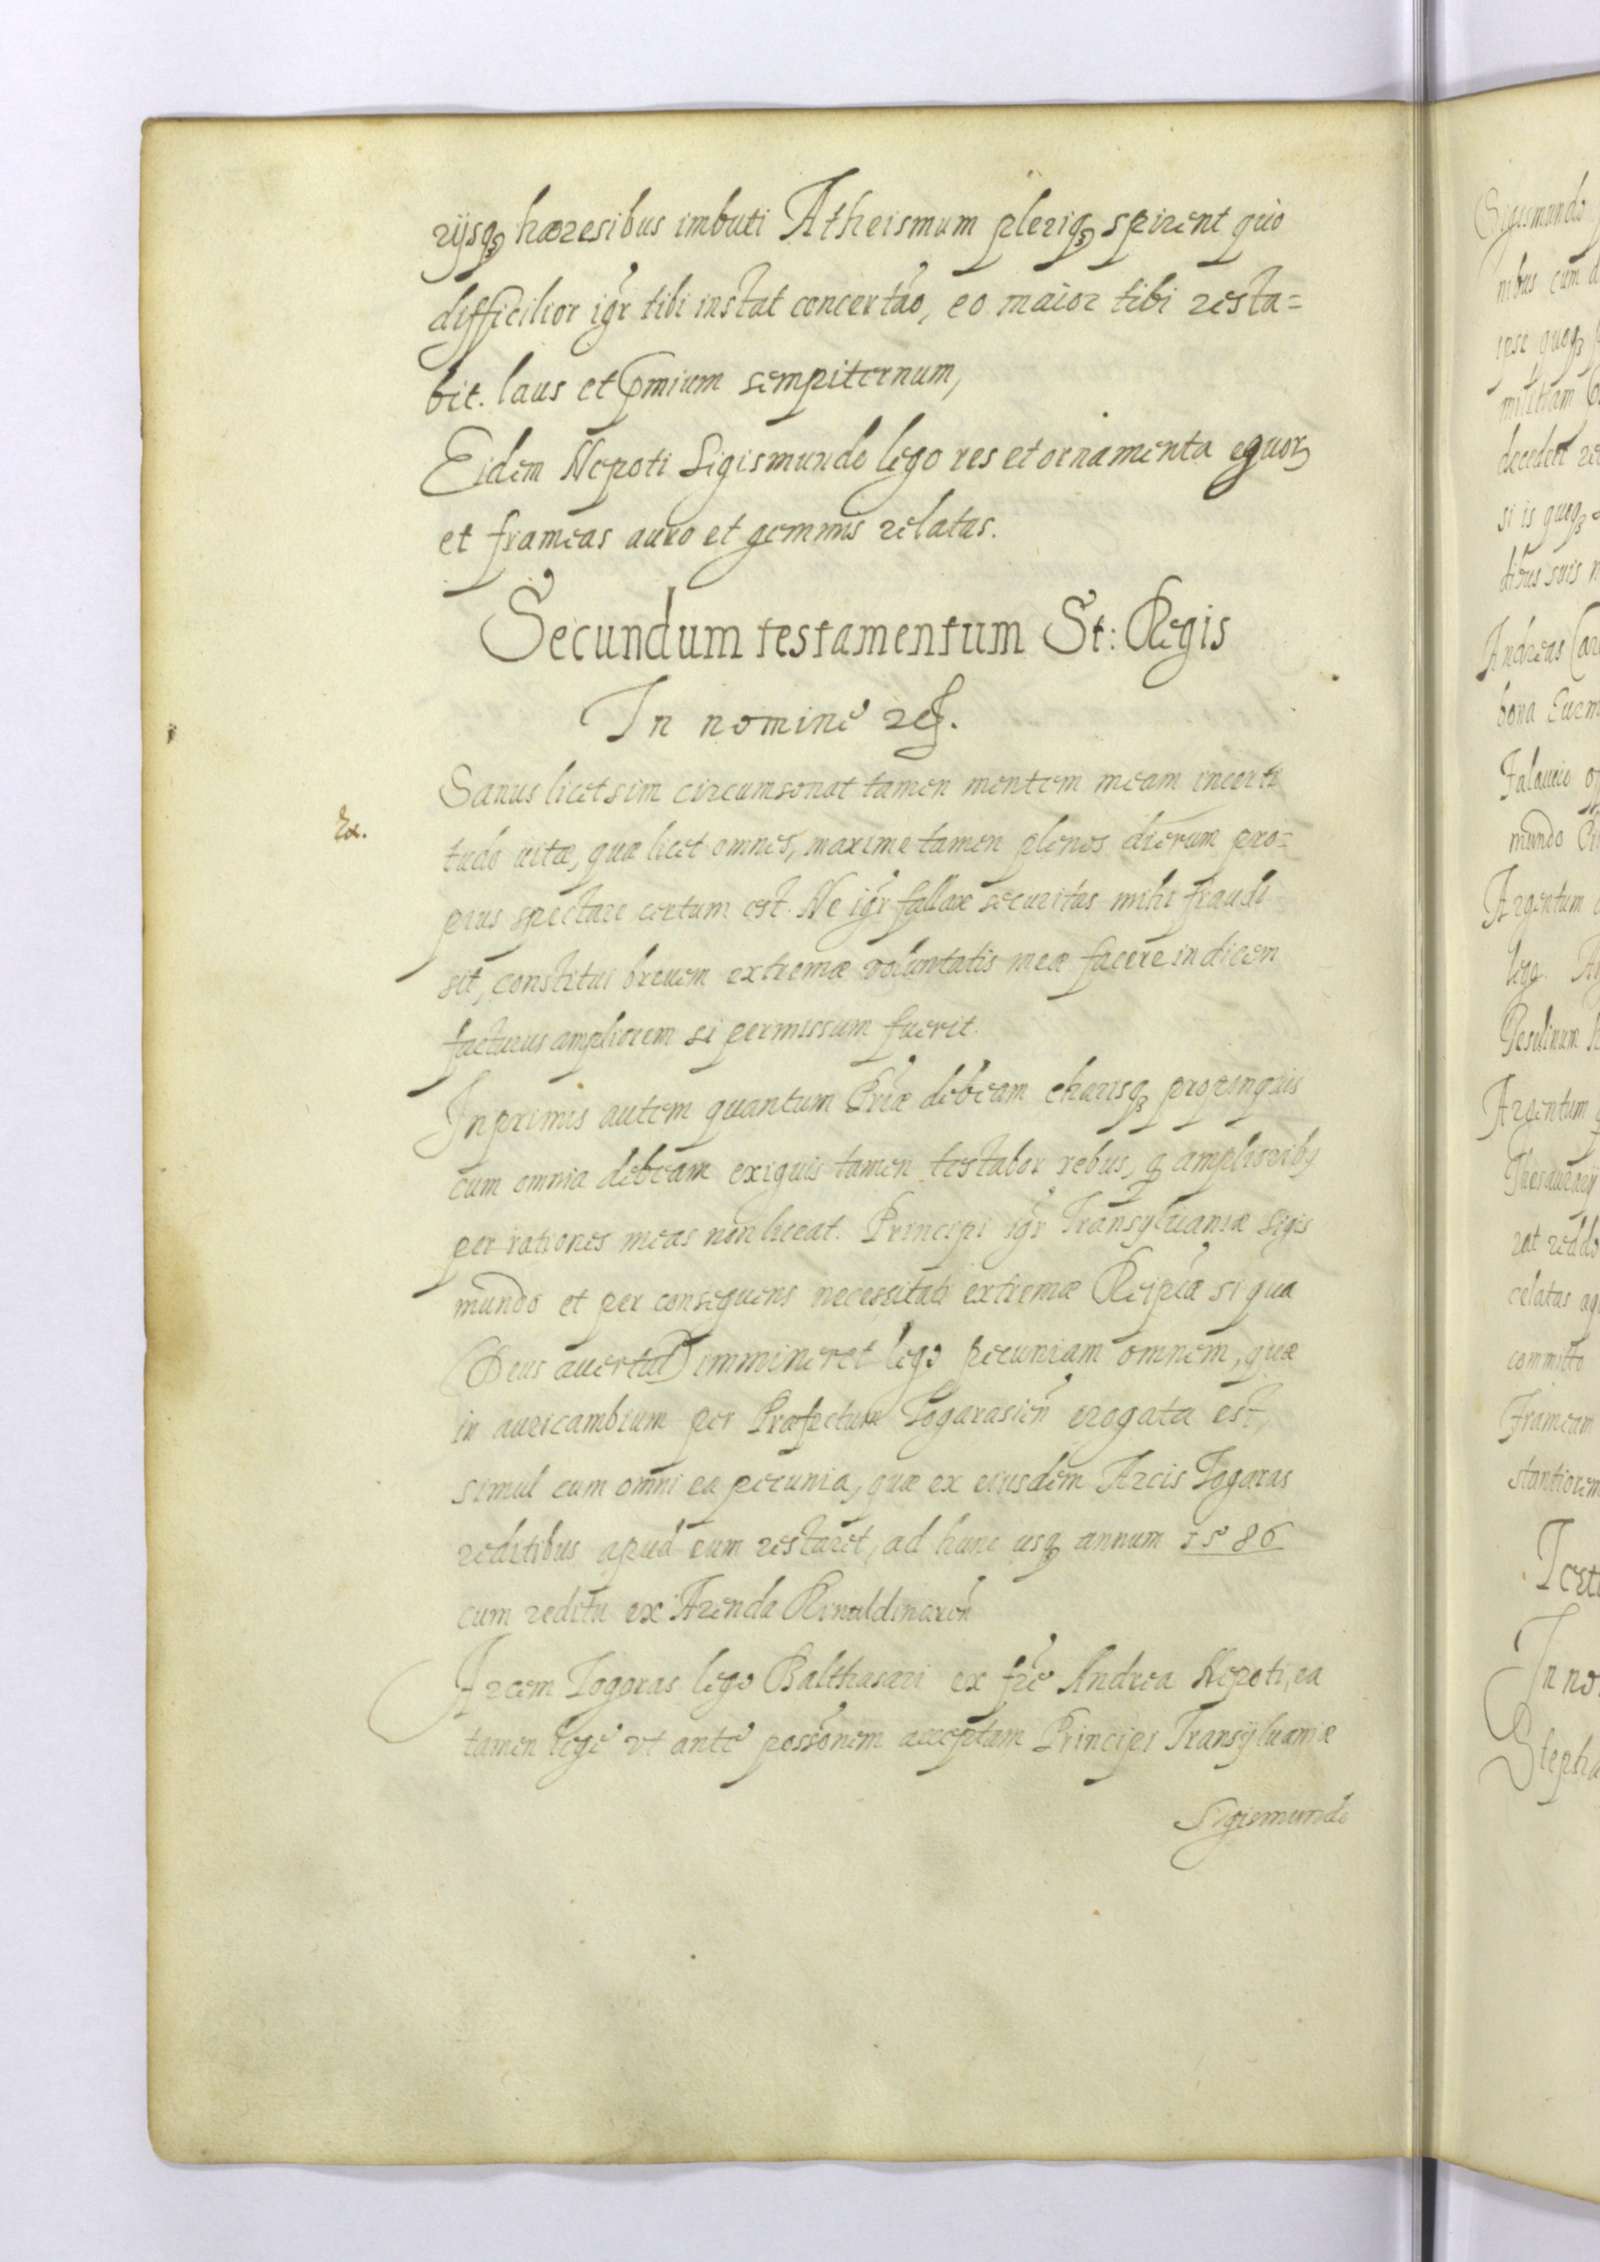 rijsq; hæresibus imbuti Atheismum pleriq; spirent quò
difficilior igr̃ tibi instat concertão, eo maior tibi resta=
bit. laus et p̃mium sempiternum,
Eidem Nepoti Sigismundo lego res et ornamenta equor;
et frameas auro et gemmis relatas.
Secundum testamentum St: Regis
In nomine etc.
Sanus licet sim circumsonat tamen mentem meam incerti
Ex.
tudo uitæ, quæ licet omnes, maxime tamen plenos dierum pro=
pius spectare certum est. Ne igr̃ fallax securitas mihi fraudi
sit, constitui breuem extremæ voluntatis meæ facere indicem
facturus ampliorem si permissum fuerit.
Inprimis autem quantum Pr̃iæ debeam charisq; propinquis
cum omnia debeam exiguis tamen testabor rebus, q amplioriby
per rationes meas non liceat. Principi igr̃ Transyluaniæ Sigis
mundo et per consequens necessitati extremæ Reipcæ si qua
(Deus auertat) immineret lego pecuniam omnem, quæ
in auricambium per Præfectum Fogarasien̄ erogata est,
simul cum omni ea pecunia, quæ ex eiusdem Arcis Fogaras
reditibus apud eum restaret, ad hunc usq; annum 1586
cum reditu ex Arenda Rinaldinoron̄
Arcem Fogoras lego Balthasari ex fr̃e Andrea Nepoti, ea
tamen lege vt ante possonem acceptam Principi Transyluaniæ
Sigismundo
Sigismundo
nibus cum
ipse quoq;
militiam
decedert
si is quoq;
dibus suis
Andreas
bona
mundo
Argentum
lego
Argentum
celatas
committo
Frameam
In no
Stepha